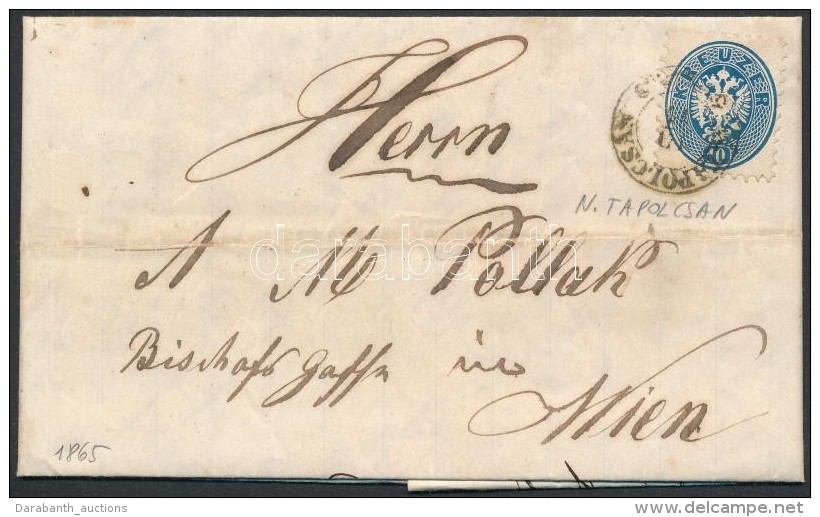 KREUZER
10
TAPOLCSAN
Herrn
N. TAPOLCSAN
darabanth
A M Pollak
Bischofs Gasse in
Wien
1865
Darabanth_auctions